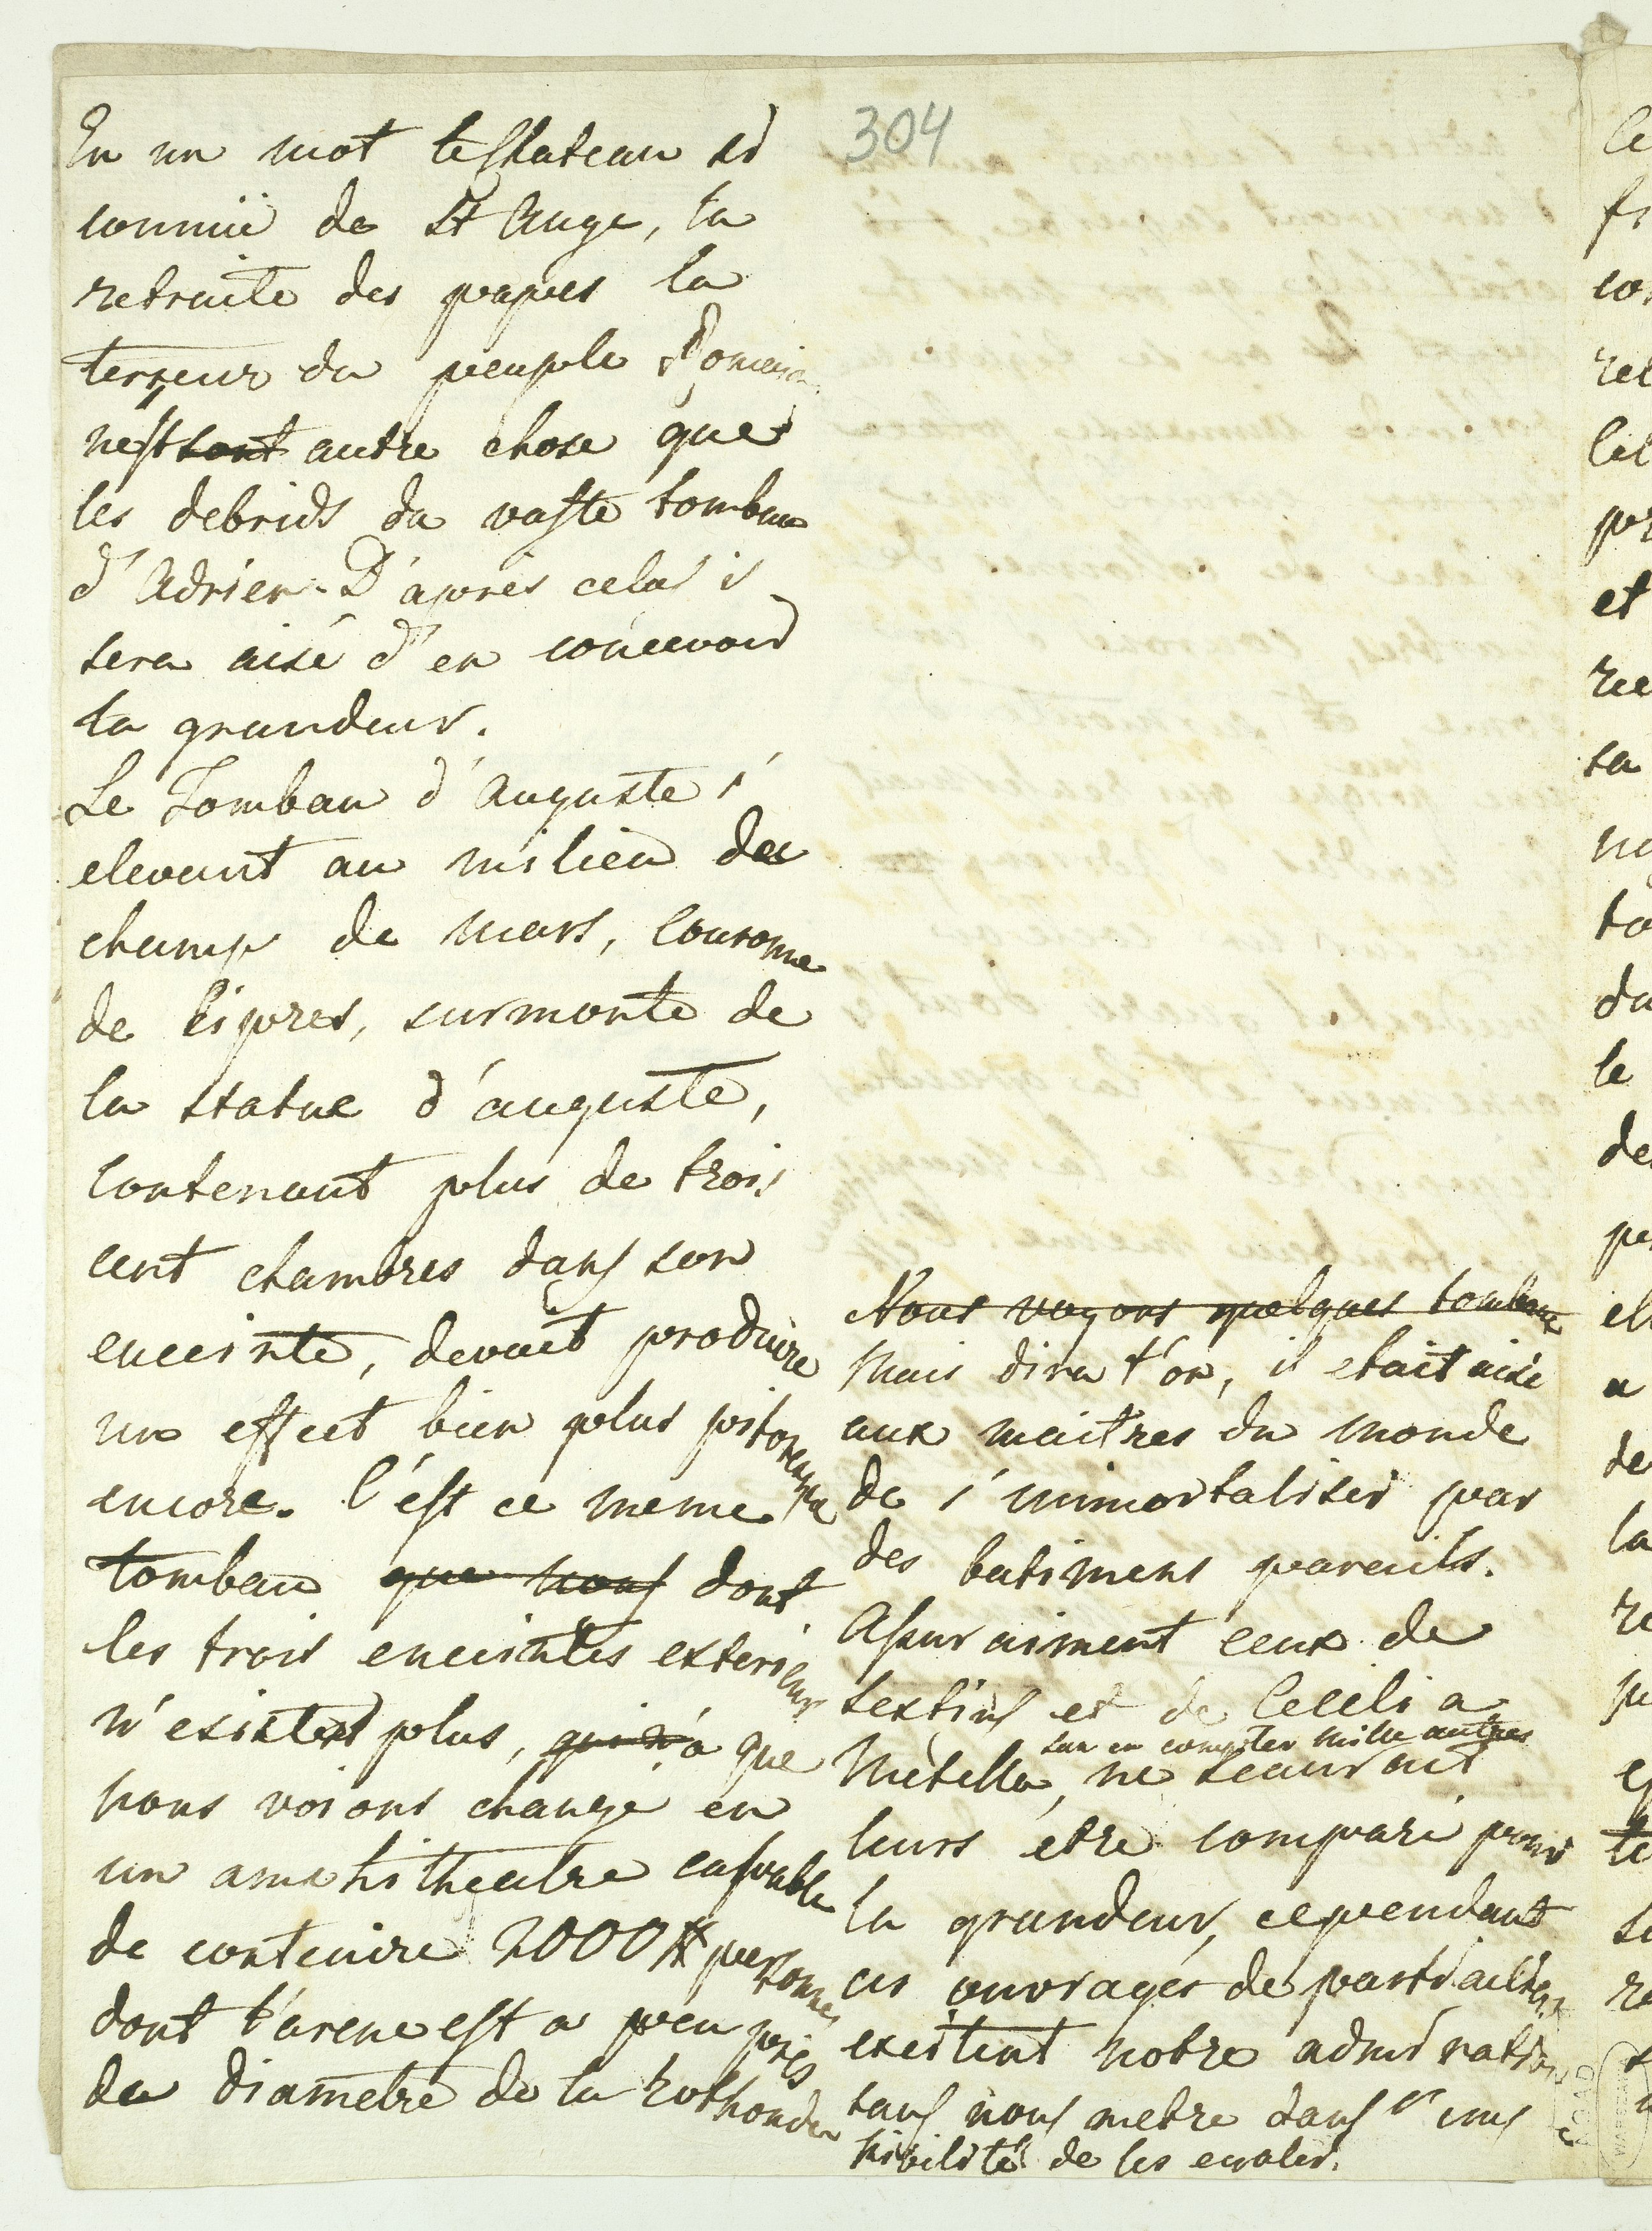 En un mot le Chateau si
connüe de St Ange, la
retraite des papes la
terreur du peuple Romain
n'est sont autre chose que
les debrids du vaste tombau
d'Adrien. D'apres cela i
sera aisé d'en concevoir
la grandeur.
Le Tombau d'Auguste s'
elevant au milieu des
champ de mars, Couronne
de Cipres, surmonte de
la statue d'auguste,
Contenant plus de trois
cent chambres dans son
enceinte, devait produire
un effect bien plus pitoresque
encore. C'est ce meme
tombau que nous dont
les trois enceintes exterieur
n'existent plus, que
nous voions changé en
un amphitheatre capable
de contenire 2000 personnes
dont l'arene est a peu près
du diametre de la Rothonde
304
Nous voyons quelques tombaux
Mais dira t'on, il etait aisé
aux maitres du monde
de s'immortaliser par
des batimens pareils.
Assuraiment ceux de
Sextius et de Cecilia
san en compter mille autres
Metella, ne scaurait
leurs être comparé pour
la grandeur, cependant
ces ouvrages de particuliers
exsitent notre admiration
sans nous metre dans l'imp
sibilité de les egaler.